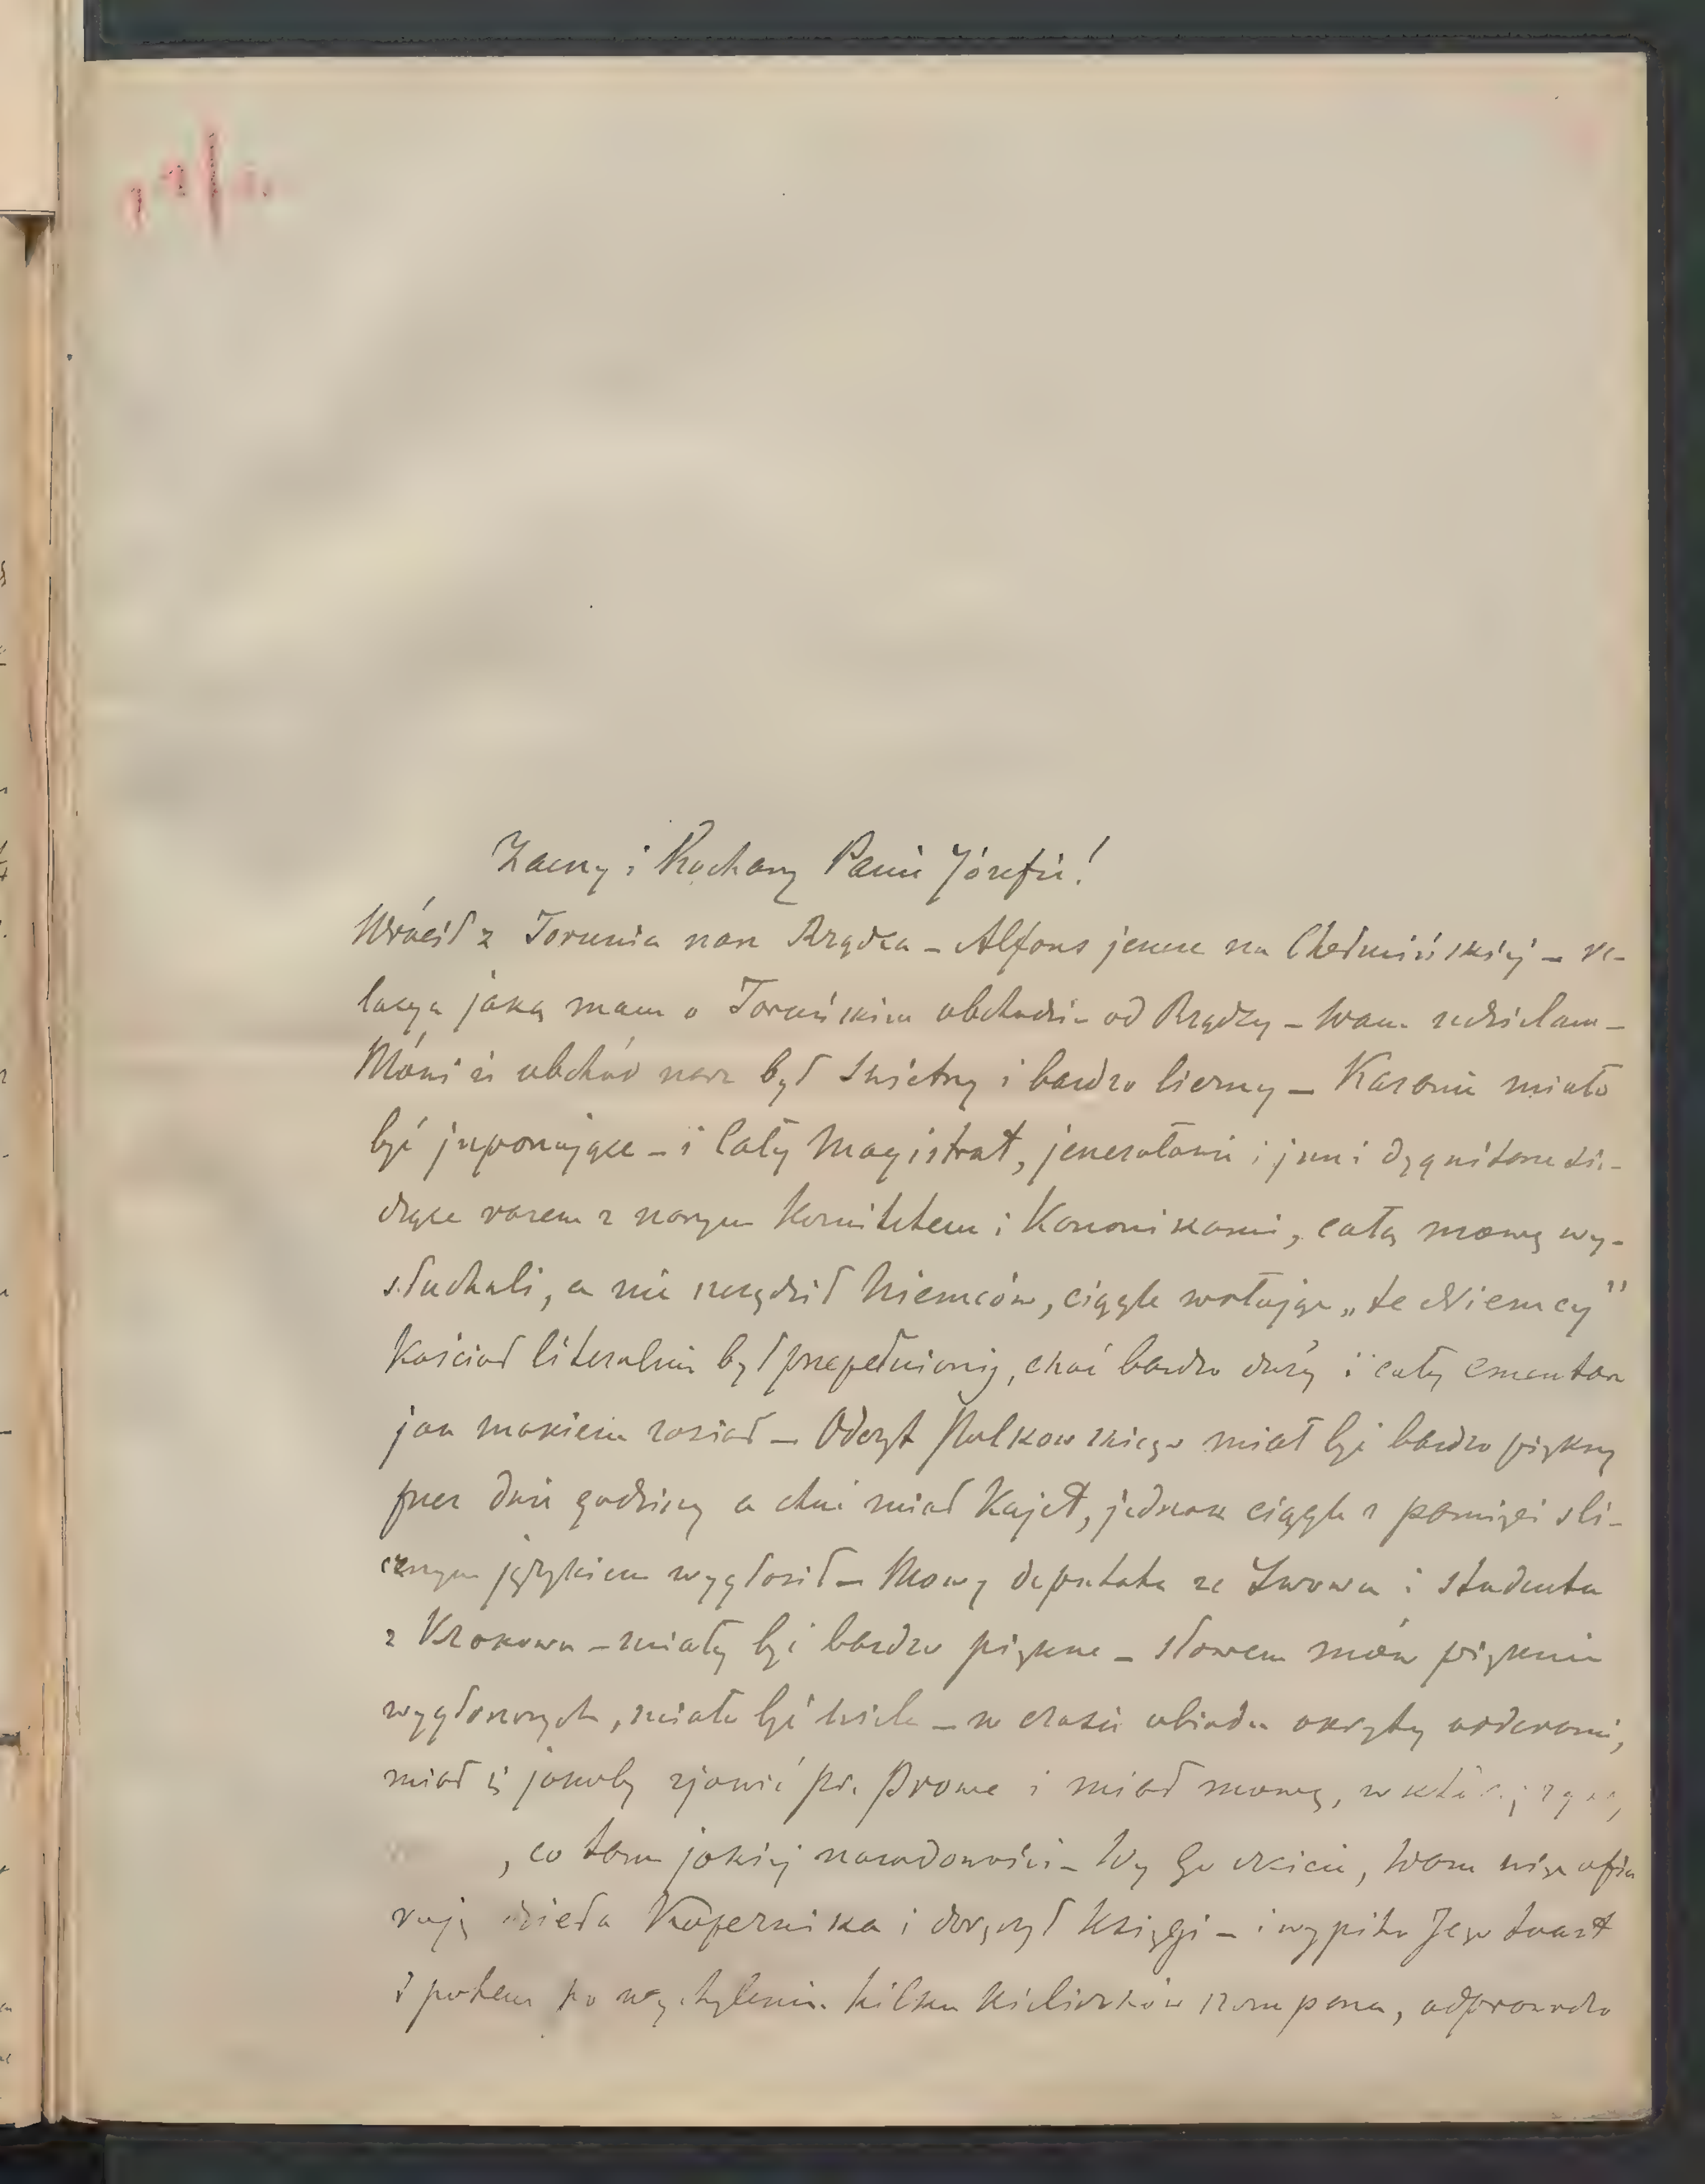 Zacny i Kochany Panie Józefie!
Wrócił z Torunia nasz Rządca – Alfons jeszcze na Chełmińskiéj – re-
lacya jaką mam o Toruńskim obchodzie od Rządzcy – Wam udzielam –
Mówi iż obchód nasz był świetny i bardzo liczny – Kazanie miało
być jmponujące – i Cały Magistrat, jenerałowie i jnni dygnitarze sie-
dząc razem z naszym Komitetem i Kanonikami, całą mowę wy-
słuchali, a nie szczędził Niemców, ciągle wołając „te Niemcy"
Kościół literalnie był przepełniony, choć bardzo duży i cały cmentarz
jak makiem zasiał – Odczyt Polkowskiego miał być bardzo piękny
przez dwie godziny a choć miał Kajet, jednak ciągle z pamięci śli-
cznym językiem wygłosił – Mowy deputata ze Lwowa i studenta
z Krakowa – miały być bardzo piękne – słowem mów pięknie
wygłoszonych, miało być wiele – w czasie obiadu okryty orderami,
miał się jakoby zjawić pr. Prowe i miał mowę, w któréj
, co tam jakiéj narodowości – Wy Go czcicie, Wam więc ofia
ruję dzieła Kopernika i doręczył Księgi – i wypito Jego toast
i potem po wychyleniu kilku kieliszków szampana, odprowadzo